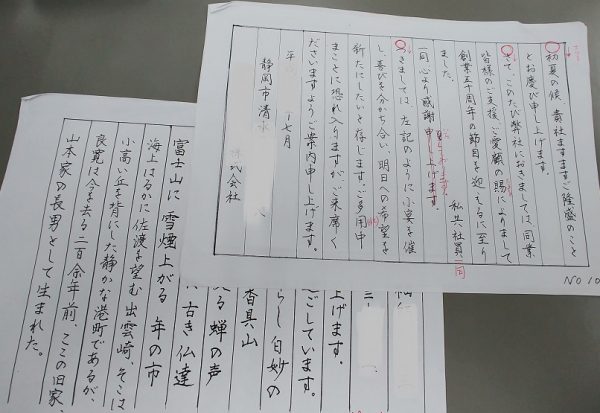 初夏の候、貴社ますますご隆盛のこと
とお慶び申し上げます。
さて、このたび弊社におきましては、同業
皆様のご支援、ご愛顧の賜によりまして
創業五十周年の節目を迎えるに至り
ました。 私共社員一同
一同心より感謝申し上げます。
つきましては、左記のように小宴を催
し、喜びを分かち合い、明日への希望を
新たにしたいと存じます。ご多用中
まことに恐れ入りますが、ご来席く
ださいますようご案内申し上げます。
平 七月
静岡市清水
株式会社
NO 10
上げます。
ごしています。
らし 白妙の
香具山
る蝉の声
古き仏達
富士山に雪煙上がる年の市
海上はるかに佐渡を望む出雲崎、そこは
小高い丘を背にした静かな港町であるが、
良寛は今を去る二百余年前、ここの旧家、
山本家の長男として生まれた。